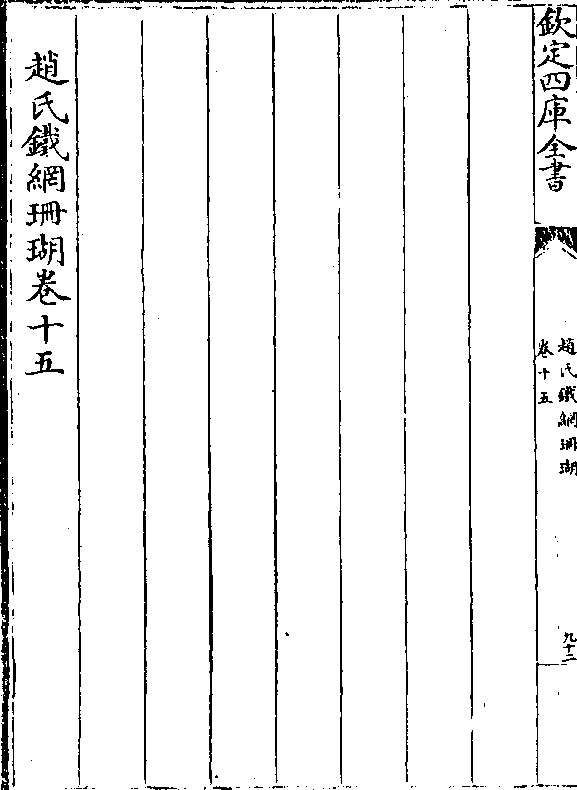 欽定四庫全書
趙氏鐵網珊瑚
卷十五
九十二
趙氏鐵網珊瑚卷十五